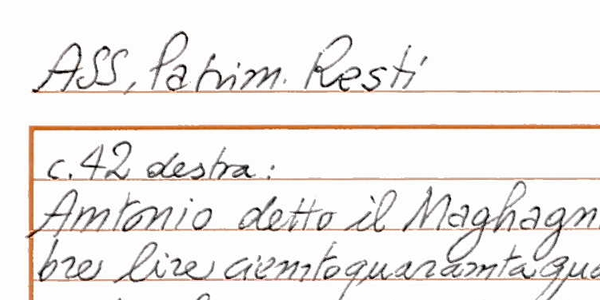 ASS, Patrim. Resti
c. 42 destra:
Antonio detto il Maghagn
bre lire cientoquaranta qua